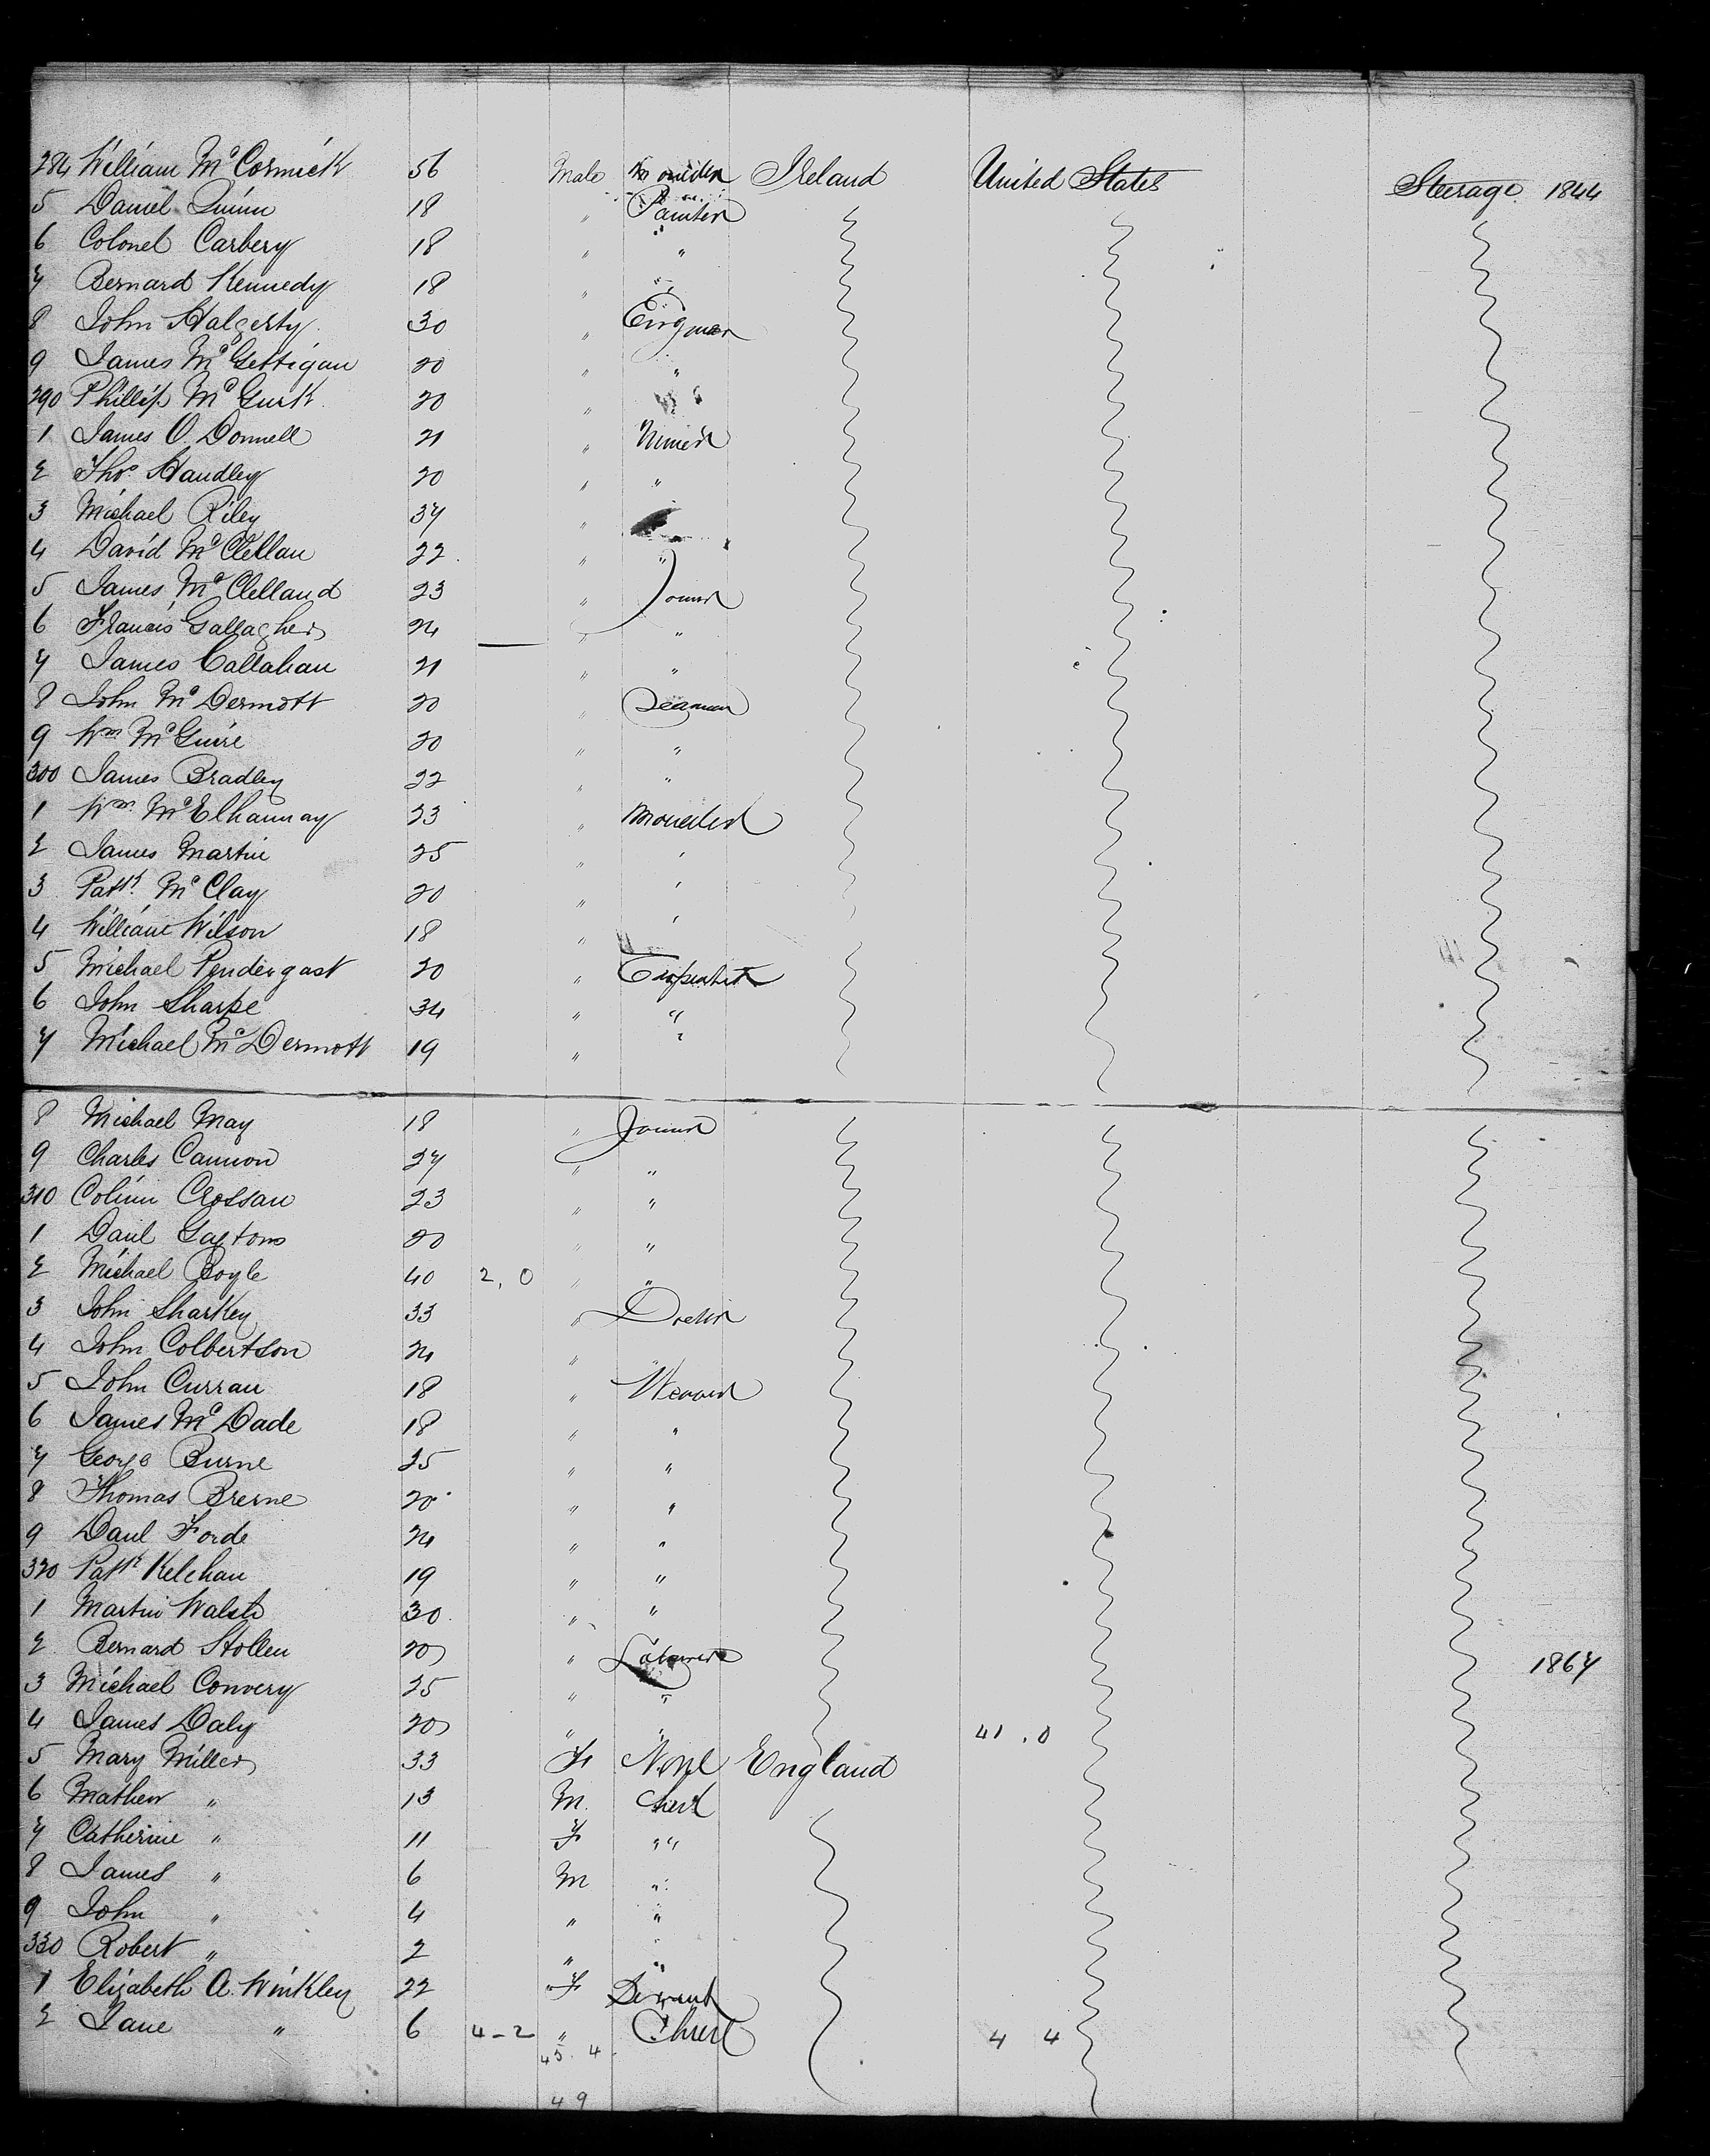 284 William McCormick 56 Male Moulder Ireland United States Steerage 1844
5 Daniel Quinn 18 " Painter
6 Colonel Carbery 18 " "
7 Bernard Kennedy 18 " "
8 John Halgerty 30 "
9 James McGettigan 20 " "
290 Phillip McGurk 20 " "
1 James O. Donnell 21 " Miner
2 Thos. Handley 20 " "
3 Michael Riley 37 "
4 David McClellan 22 " "
5 James McClelland 23 " Joiner
6 Francis Gallagher 24 " "
7 James Callahan 21 " "
8 John McDermott 20 " Seaman
9 Wm McGuire 20 " "
300 James Bradley 22 " "
1 Wm McElhannay 23 " Moulder
2 James Martin 25 " "
3 Patk. McClay 20 " "
4 William Wilson 18 " "
5 Michael Pendergast 20 "
6 John Sharpe 34 " "
7 Michael McDermott 19 " "
8 Michael May 18 " Joiner
9 Charles Cannon 27 " "
310 Colinn Crossan 23 " "
1 Danl 20 " "
2 Michael Boyle 40 2, 0 " "
3 John Sharkey 33 "
4 John Colbertson 24 " "
5 John Curran 18 " Weaver
6 James McDade 18 " "
7 George Burne 25 " "
8 Thomas Brerne 20 " "
9 Danl Forde 24 " "
320 Patk Kelehan 19 " "
1 Martin Walsh 30 " "
2 Bernard Stollen 20 " Labourer 1867
3 Michael Convery 25 " "
4 James Daly 20 " " 41 . 0
5 Mary Miller 33 F None England
6 Mathew " 13 M. Child
7 Catherine " 11 F " "
8 James " 6 M "
9 John " 4 " "
330 Robert " 2 " "
1 Elizabeth A. Winkley 22 F Servant
2 Jane " 6 4-2 " Child 4 4
45. 4.
49